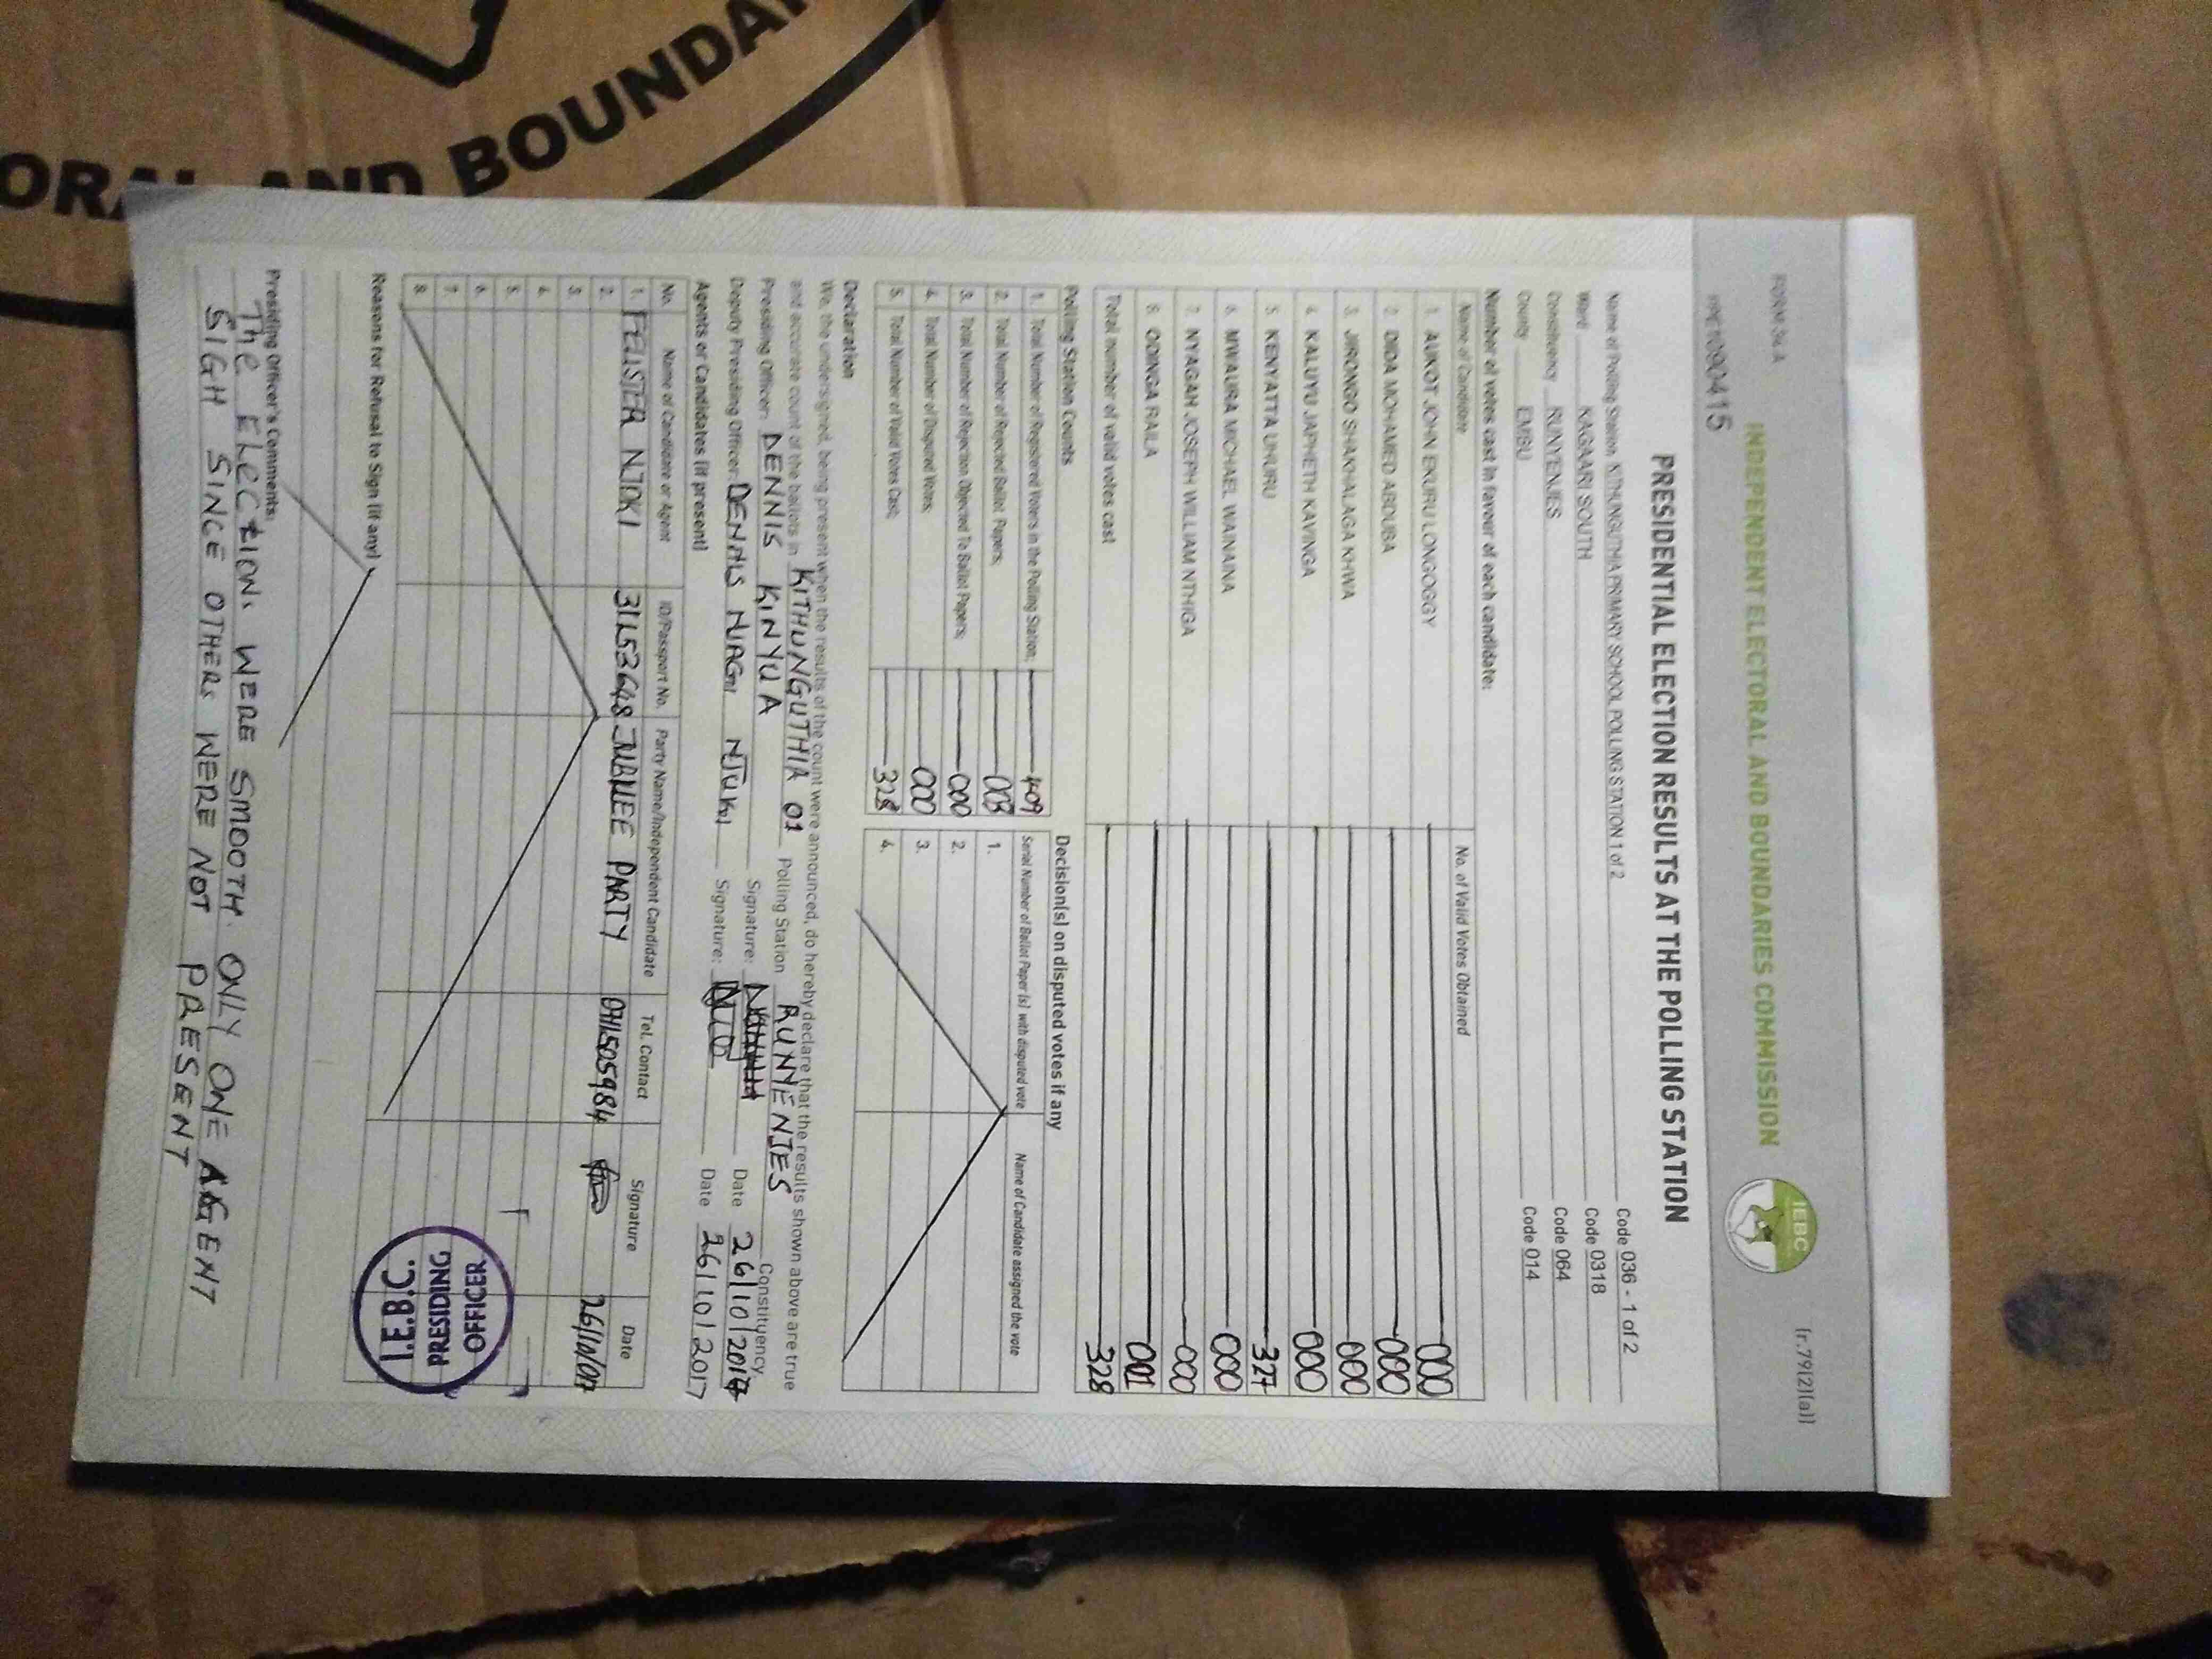 ORAL AND BOUNDA
FORM 34 A
(r.79(2)(a))
INDEPENDENT ELECTORAL AND BOUNDARIES COMMISSION
IEBC
PRESIDENTIAL ELECTION RESULTS AT THE POLLING STATION
Name of Polling Station KITHUNGUTHIA PRIMARY SCHOOL POLLING STATION 1 of 2 Code 036 - 1 of 2
Ward KAGAARI SOUTH Code 0318
Constituency RUNYENJES Code 064
County EMBU Code 014
Number of votes cast in favour of each candidate:
Name of Candidate No. of Valid Votes Obtained
1. AUKOT JOHN EKURU LONGOGGY 000
2. DIDA MOHAMED ABDUBA 000
3. JIRONGO SHAKHALAGA KHWA 000
4. KALUYU JAPHETH KAVINGA 000
5. KENYATTA UHURU 327
6. MWAURA MICHAEL WAINAINA 000
7. NYAGAH JOSEPH WILLIAM NTHIGA 000
8. ODINGA RAILA 001
Total number of valid votes cast 328
Polling Station Counts
1. Total Number of Registered Voters in the Polling Station; 409
2. Total Number of Rejected Ballot Papers; 003
3. Total Number of Rejection Objected To Ballot Papers; 000
4. Total Number of Disputed Votes; 000
5. Total Number of Valid Votes Cast; 328
Decision(s) on disputed votes if any
Serial Number of Ballot Paper (s) with disputed vote Name of Candidate assigned the vote
1.
2.
3.
4.
Declaration
We, the undersigned, being present when the results of the count were announced, do hereby declare that the results shown above are true
and accurate count of the ballots in KITHUNGUTHIA 01 Polling Station RUNYENJES Constituency
Presiding Officer: DENNIS KINYUA Signature: Date 26/10/2017
Deputy Presiding Officer: DENNIS NJAGI NJUKI Signature: Date 26/10/2017
Agents or Candidates (if present)
No. Name of Candidate or Agent ID/Passport No. Party Name/Independent Candidate Tel. Contact Signature Date
1. FELISTER NJOKI 31153648 JUBILEE PARTY 071505984 26/10/017
2.
3.
4.
5.
6.
7.
8.
I.E.B.C.
PRESIDING
OFFICER
Reasons for Refusal to Sign (if any)
Presiding Officer's Comments:
The ELECTIONS WERE SMOOTH. ONLY ONE AGENT
SIGH SINCE OTHERS WERE NOT PRESENT